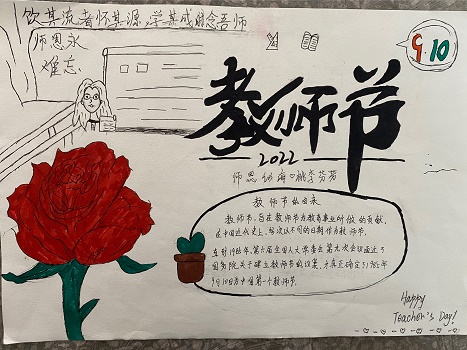 饮其流者怀其源,学其成时念吾师
师恩永
难忘
9.10
教师节
2022
师恩似海 桃李芬芳
教师节的由来
教师节,旨在肯定教师为教育事业所做的贡献。
在中国近代史上,多次以不同的日期作为教师节。
直到1985年,第六届全国人大常委会第九次会议通过了
国务院关于建立教师节的议案,才真正确定了1985年
9月10日为中国第一个教师节。
Happy
Teacher's Day!